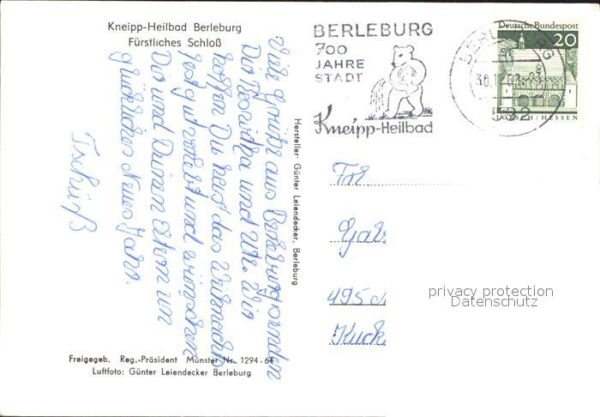 Kneipp-Heilbad Berleburg
Fürstliches Schloß
BERLEBURG
700
JAHRE
STADT
Kneipp-Heilbad
Deutsche Bundespost
20
LORSCH/HESSEN
Viele Grüße aus Berleburg
Dir
und Wir
hoffen Du hast das Weihnachts
gut und wünschen
Dir und Deinen Eltern ein
glückliches Neues Jahr.
Tschüß
Hersteller: Günter Leiendecker, Berleburg
Frl
Gab
495
Kuck
privacy protection
Datenschutz
Freigegeb. Reg.-Präsident Münster Nr. 1294-64
Luftfoto: Günter Leiendecker Berleburg